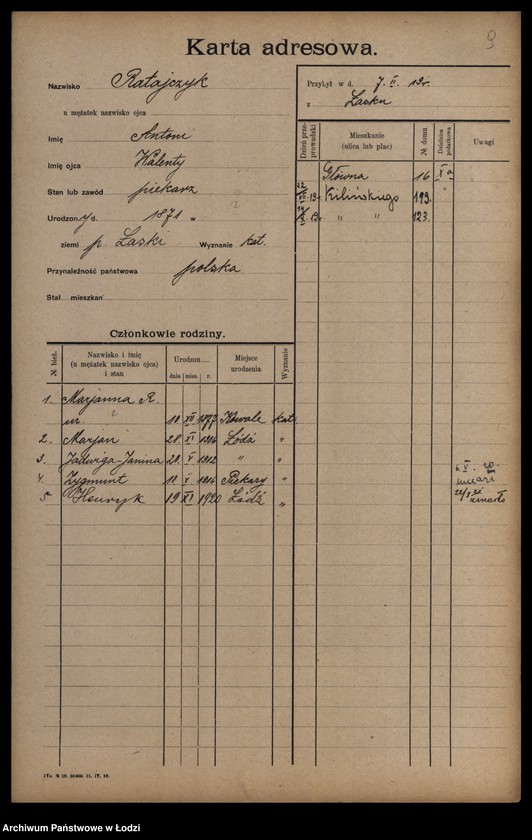 9
Karta adresowa.
Nazwisko Ratajczyk
u mężatek nazwisko ojca
Imię Antoni
Imię ojca Walenty
Stan lub zawód piekarz
Urodzon y d. 1871 w
ziemi p. Laski Wyznanie kat.
Przynależność państwowa polska
Stał. mieszkan
Przybył w d. 7. II. 19 r.
z Lasku
Dzień przeprowadzki Mieszkanie (ulica lub plac) № domu Dzielnica podatkowa Uwagi
Główna 16 X a
22/VII 19 r. Kilińskiego 199. "
14/X 19 r. " " 123.
Członkowie rodziny.
№ bież. Nazwisko i imię (u mężatek nazwisko ojca) i stan Urodzon Miejsce urodzenia Wyznanie
dnia mies. r.
1. Marjanna R.
ur. ? 10 XII 1877 Kowale kat
2. Marjan 28 XI 1906 Łódź "
3. Jadwiga-Janina 20 V 1912 " "
4. Zygmunt 10 X 1916 Piekary "
6. V. 20.
5 Henryk 19 XI 1920 Łódź "
zmarło
Archiwum Państwowe w Łodzi